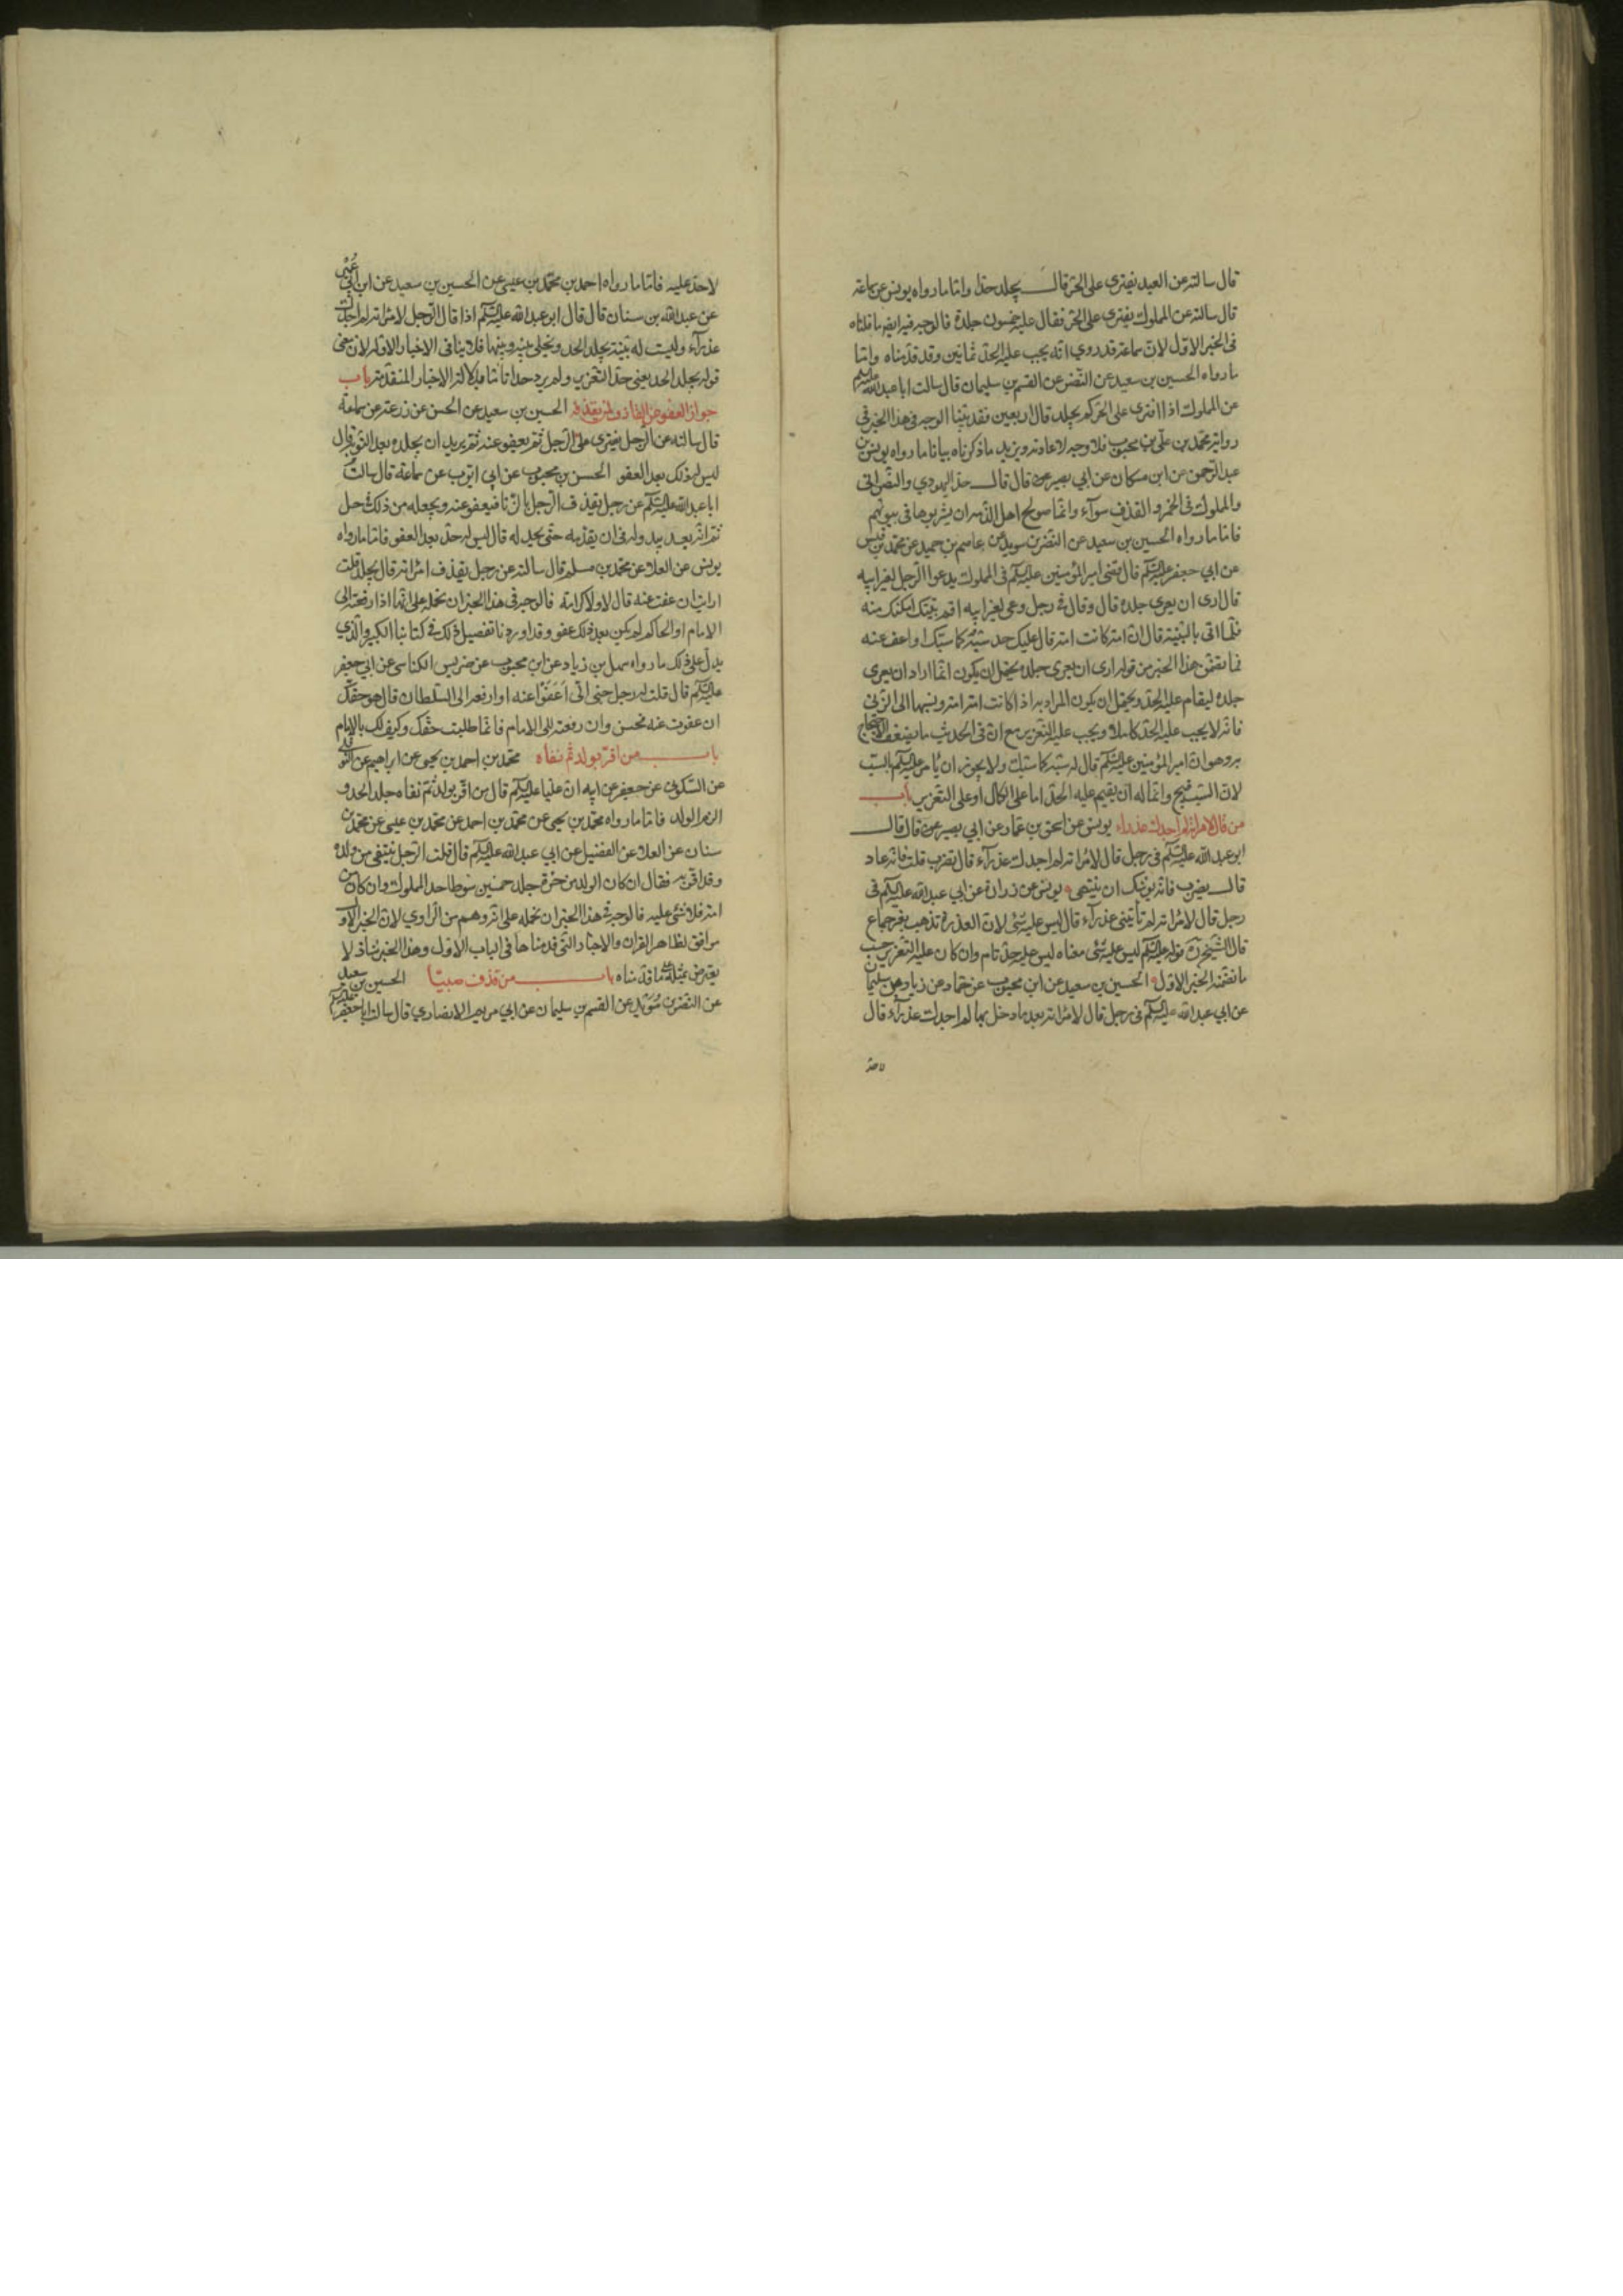 قال سالته عن العبد يفترى على الحر قال يجلد حدا واما ما رواه يونس عن سماعة
قال سالته عن المملوك يفترى على الحر فقال عليه خمسون جلدة فالوجه فيه ايضا ما قلناه
فى الخبر الاول لان سماعة قد روي انه يجب عليه الحد ثمانين وقد قدمناه واما
ما رواه الحسين بن سعيد عن النضر عن القسم بن سليمان قال سالت ابا عبد الله عليه السلم
عن المملوك اذا افترى على الحر كم يجلد قال اربعين فقد بينا الوجه فى هذا الخبر فى
رواية محمد بن على بن محبوب فلا وجه لاعادته ويزيد ما ذكرناه بيانا ما رواه يونس بن
عبد الرحمن عن ابن مسكان عن ابي بصير قال قال حد اليهودي والنصرانى
والمملوك فى الخمر والقذف سوآء وانما صولح اهل الذمة ان يشربوها فى بيوتهم
فاما ما رواه الحسين بن سعيد عن النضر بن سويد عن عاصم بن حميد عن محمد بن قيس
عن ابي جعفر عليه السلم قال قضى امير المؤمنين عليه السلم فى المملوك يدعوا الرجل لغير ابيه
قال ارى ان يعرى جلده قال وقال فى رجل دعى لغير ابيه اقم بينتك امكنك منه
فلما اتى بالبينة قال ان امه كانت امة قال عليك حد سبه كما سبك او اعف عنه
فما تضمن هذا الخبر من قوله ارى ان يعرى جلده يحتمل ان يكون انما اراد ان يعرى
جلده ليقام عليه الحد ويحتمل ان يكون المراد به اذا كانت امه امة ونسبها الى الزنى
فانه لا يجب عليه الحد كاملا ويجب عليه التعزير مع ان فى الحديث ما يضعف الاحتجاج
به وهو ان امير المؤمنين عليه السلم قال له سبه كما سبك ولا يجوز ان يامر عليه السلم بالسب
لان السب قبيح وانما له ان يقيم عليه الحد اما على الكمال او على التعزير باب
من قال لامراته لم اجدك عذراء يونس عن اسحق بن عمار عن ابي بصير قال قال
ابو عبد الله عليه السلم فى رجل قال لامراته لم اجدك عذرآء قال يضرب قلت فانه عاد
قال يضرب فانه يوشك ان ينتهى يونس عن زرارة عن ابي عبد الله عليه السلم فى
رجل قال لامراته لم تاتينى عذرآء قال ليس عليه شئ لان العذرة تذهب بغير جماع
قال الشيخ ره قوله عليه السلم ليس عليه شئ معناه ليس عليه حد تام وان كان عليه التعزير حسب
ما تضمنه الخبر الاول الحسين بن سعيد عن ابن محبوب عن حماد عن زياد عن سليمان
عن ابي عبد الله عليه السلم فى رجل قال لامراته بعد ما دخل بها لم اجدك عذرآء قال
لا حد
لا حد عليه فاما ما رواه احمد بن محمد بن عيسى عن الحسين بن سعيد عن ابن ابي عمير
عن عبد الله بن سنان قال قال ابو عبد الله عليه السلم اذا قال الرجل لامراته لم اجدك
عذرآء وليست له بينة يجلد الحد ويخلى بينه وبينها فلا ينافى الاخبار الاولة لان معنى
قوله يجلد الحد يعنى حد التعزير ولم يرد حدا تاما بدلالة الاخبار المتقدمة باب
جواز العفو عن القاذف لمن يقذفه الحسين بن سعيد عن الحسن عن زرعة عن سماعة
قال سالته عن الرجل يفترى على الرجل ثم يعفو عنه ثم يريد ان يجلده بعد العفو قال
ليس له ذلك بعد العفو الحسن بن محبوب عن ابي ايوب عن سماعة قال سالت
ابا عبد الله عليه السلم عن رجل يقذف الرجل بالزنا فيعفو عنه ويجعله من ذلك فى حل
ثم انه بعد يبدو له فى ان يقذمه حتى يجلد له قال ليس له حد بعد العفو فاما ما رواه
يونس عن العلا عن محمد بن مسلم قال سالته عن رجل يقذف امراته قال يجلد قلت
ارايت ان عفت عنه قال لا ولا كرامة فالوجه فى هذا الخبر ان نحمله على انها اذا رفعته الى
الامام او الحاكم لم يكن بعد ذلك عفو وقد اوردنا تفصيل ذلك فى كتابنا الكبير والذي
يدل على ذلك ما رواه سهل بن زياد عن ابن محبوب عن ضريس الكناسى عن ابي جعفر
عليه السلم قال قلت له رجل جنى الى اعفوا عنه او ارفعه الى السلطان قال هو حقك
ان عفوت عنه فحسن وان رفعته الى الامام فانما طلبت حقك وكيف لك بالامام
باب من اقر بولد ثم نفاه محمد بن احمد بن يحيى عن ابراهيم عن النوفلى
عن السكونى عن جعفر عن ابيه ان عليا عليه السلم قال من اقر بولد ثم نفاه جلد الحد و
الزم الولد فاما ما رواه محمد بن يحيى عن محمد بن احمد عن محمد بن عيسى عن محمد بن
سنان عن العلا عن الفضيل عن ابي عبد الله عليه السلم قال قلت الرجل ينتفى من ولده
وقد اقر به فقال ان كان الولد من حرة جلد خمسين سوطا حد المملوك وان كان من
امة فلا شئ عليه فالوجه فى هذا الخبر ان نحمله على انه وهم من الراوي لان الخبر الاول
موافق لظاهر القران والاخبار التى قدمناها فى الباب الاول وهذا الخبر شاذ لا
يعترض بمثله على ما قدمناه باب من قذف صبيا الحسين بن سعيد
عن النضر بن سويد عن القسم بن سليمان عن ابي مريم الانصاري قال سالت ابا جعفر عليه السلم